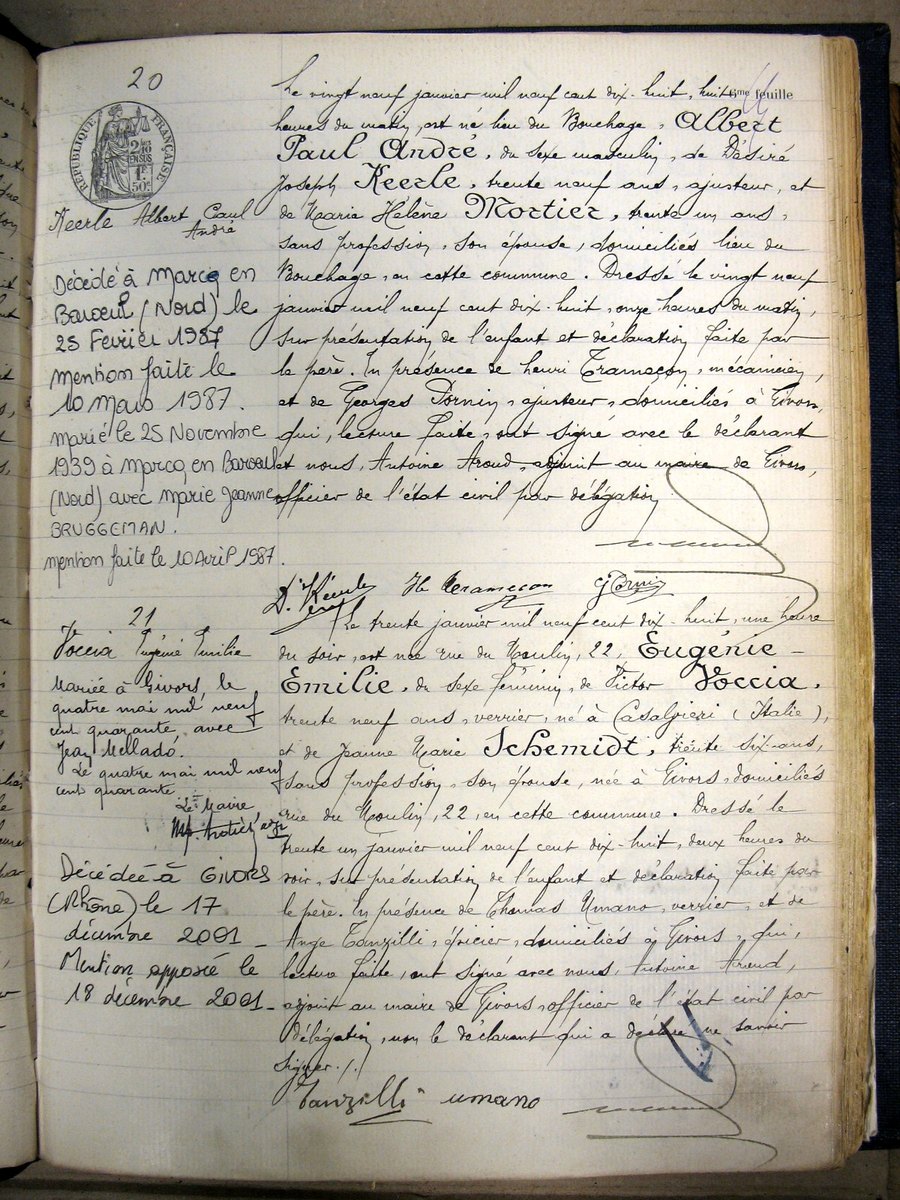 20
REPUBLIQUE FRANÇAISE
2/10 EN SUS
1F.50c
Keerle Albert Paul
André
Décédé à Marcq en
Baroeul (Nord) le
25 Février 1987
mention faite le
10 Mars 1987.
marié le 25 Novembre
1939 à Marcq en Baroeul
(Nord) avec Marie Jeanne
BRUGGEMAN.
mention faite le 10 Avril 1987.
6me feuille
Le vingt neuf janvier mil neuf cent dix-huit, huit
heures du matin, est né lieu du Bouchage, Albert
Paul André, du sexe masculin, de Désiré
Joseph Keerle, trente neuf ans, ajusteur, et
de Maria Hélène Mortier, trente un ans,
sans profession, son épouse, domiciliés lieu du
Bouchage, en cette commune. Dressé le vingt neuf
janvier mil neuf cent dix-huit, onze heures du matin,
sur présentation de l'enfant et déclaration faite par
le père. En présence de henri Trameçon, mécanicien,
et de Georges Dornin, ajusteur, domiciliés à Givors,
qui, lecture faite, ont signé avec le déclarant
et nous, Antoine Aroud, adjoint au maire de Givors,
officier de l'état civil par délégation
21
Voccia Eugénie Emilie
Mariée à Givors, le
quatre mai mil neuf
cent quarante, avec
Jean Mellado.
Le quatre mai mil neuf
cent quarante
Le Maire
Décédée à GIVORS
(Rhône) le 17
décembre 2001 -
Mention apposée le
18 décembre 2001 -
Le trente janvier mil neuf cent dix-huit, une heure
du soir, est née rue du Moulin, 22, Eugénie -
Emilie, du sexe féminin, de Victor Voccia,
trente neuf ans, verrier, né à Casalvieri (Italie),
et de Jeanne Marie Schemidt, trente six-ans,
sans profession, son épouse, née à Givors, domiciliés
rue du Moulin, 22, en cette commune. Dressé le
trente un janvier mil neuf cent dix-huit, deux heures du
soir, sur présentation de l'enfant et déclaration faite par
le père. En présence de Thomas Umano, verrier, et de
Ange Tanzilli, épicier, domiciliés à Givors, qui,
lecture faite, ont signé avec nous, Antoine Aroud,
adjoint au maire de Givors, officier de l'état civil par
délégation, non le déclarant qui a déclaré ne savoir
signer./.
Tanzilli umano